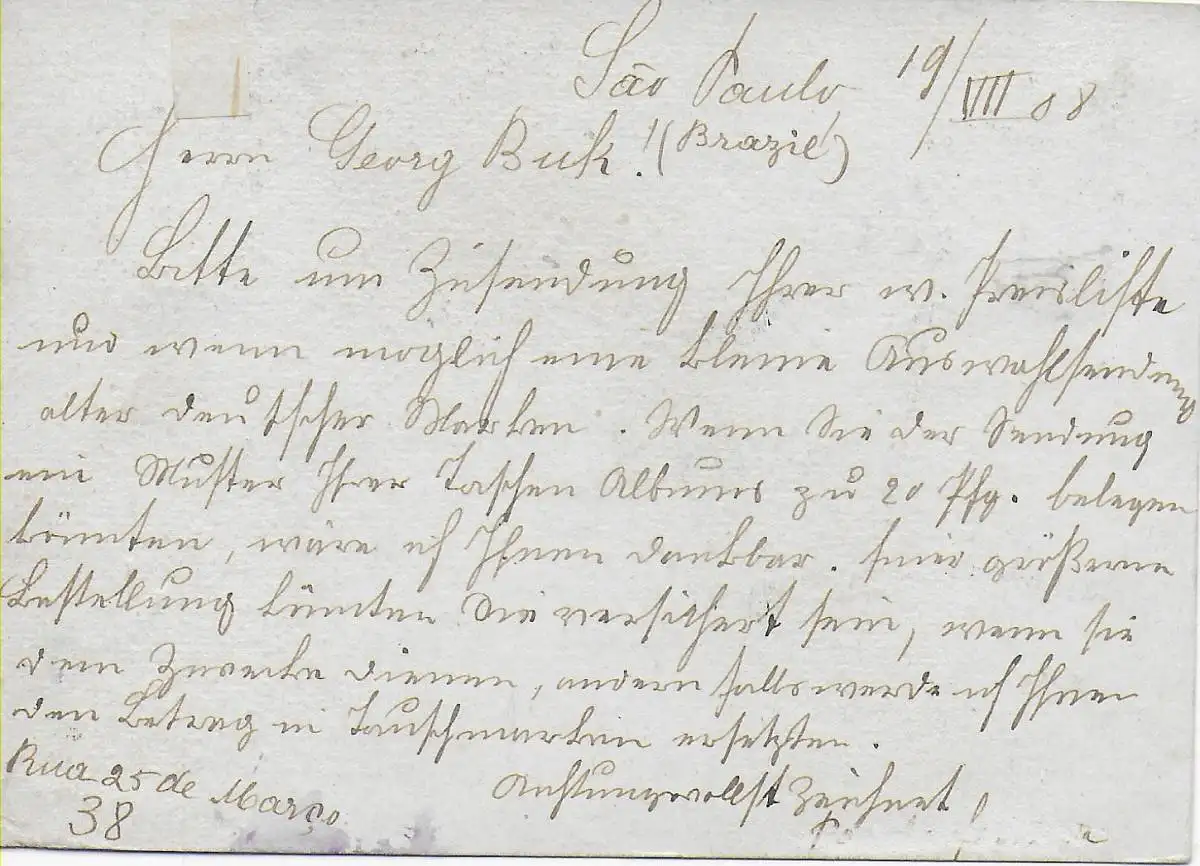 São Paulo 19/VIII 08
Herrn Georg Buck! (Brazil)
Bitte um Zusendung Ihrer w. Preisliste
und wenn möglich eine kleine Auswahlsendung
alter deutscher Marken. Wenn Sie der Sendung
ein Muster Ihrer Taschen Albums zu 20 Pfg. belegen
könnten, wäre ich Ihnen dankbar. Einer größeren
Bestellung könnten Sie versichert sein, wenn sie
dem Zwecke dienen, andern falls werde ich Ihnen
den Betrag in Tauschmarken ersetzten.
Rua 25 de Março Achtungsvollst zeichnet
38